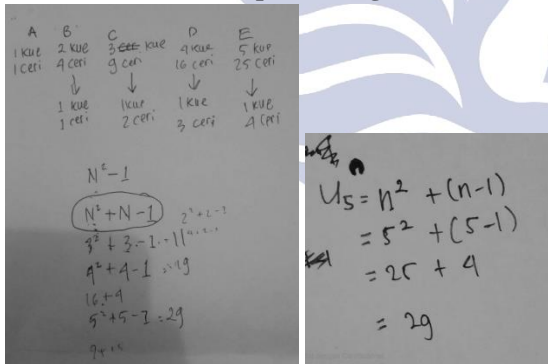 A B C D E
1 kue 2 kue 3 kue 4 kue 5 kue
1 ceri 4 ceri 9 ceri 16 ceri 25 ceri
↓ ↓ ↓ ↓
1 kue 1 kue 1 kue 1 kue
1 ceri 2 ceri 3 ceri 4 ceri
N² - 1
N² + N - 1
3² + 3 - 1 = 11
4² + 4 - 1 = 19
16 + 4
5² + 5 - 1 = 29
U₅ = n² + (n-1)
= 5² + (5-1)
= 25 + 4
= 29